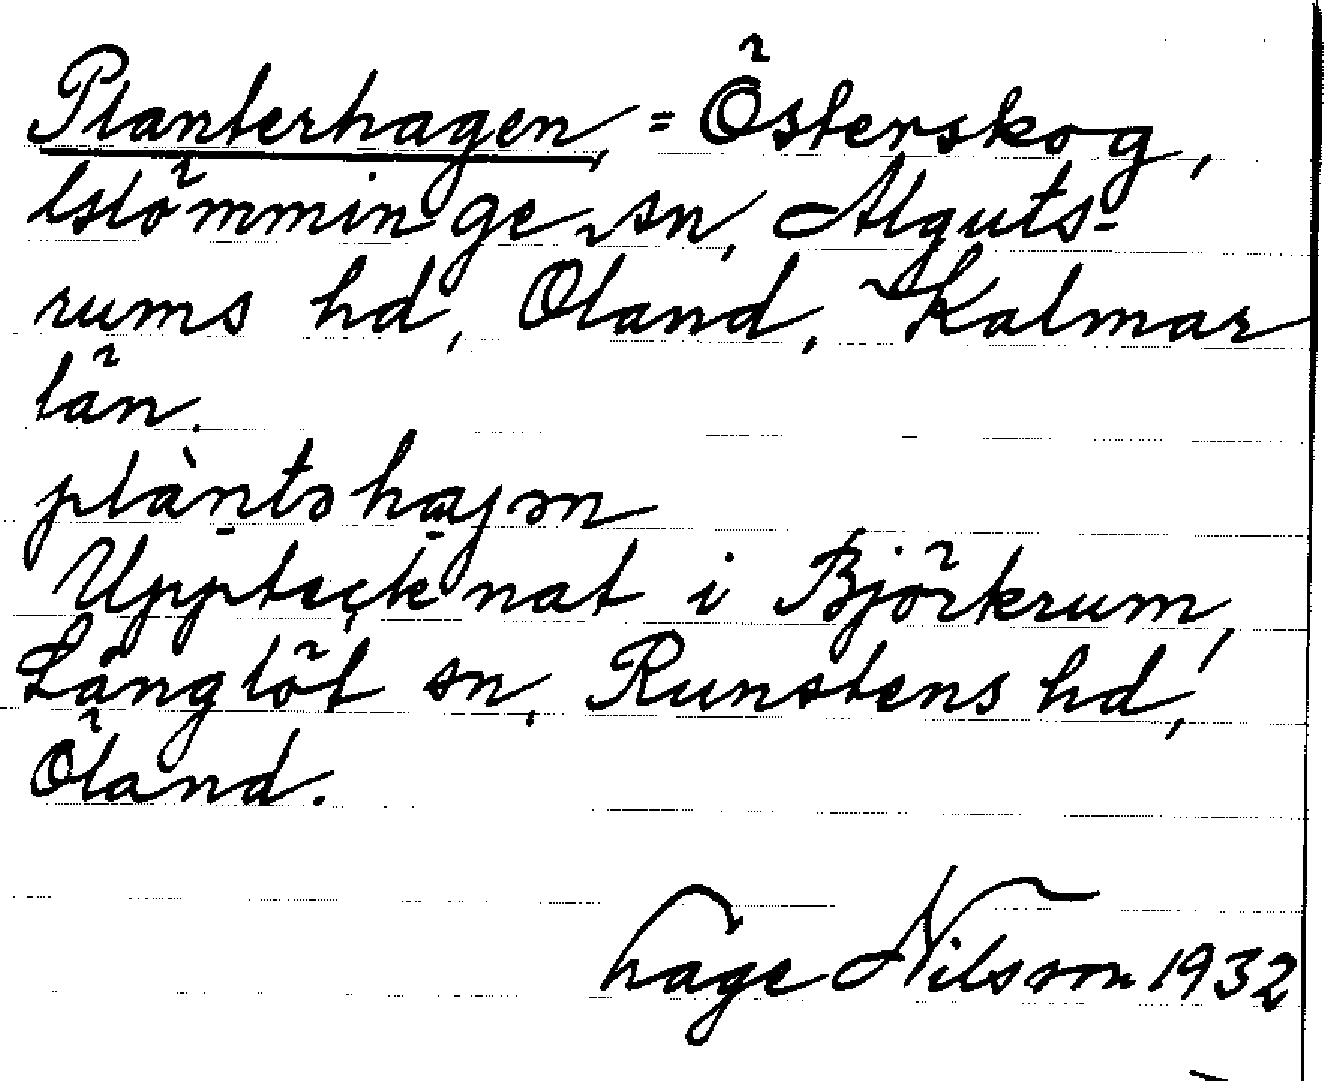 Planterhagen, = Österskog,
Glömminge sn, Alguts-
rums hd, Öland, Kalmar
län.
plàntəhaɡən
Upptecknat i Björkerum,
Långlöt sn, Runstens hd,
Öland.
Lage Nilsson 1932